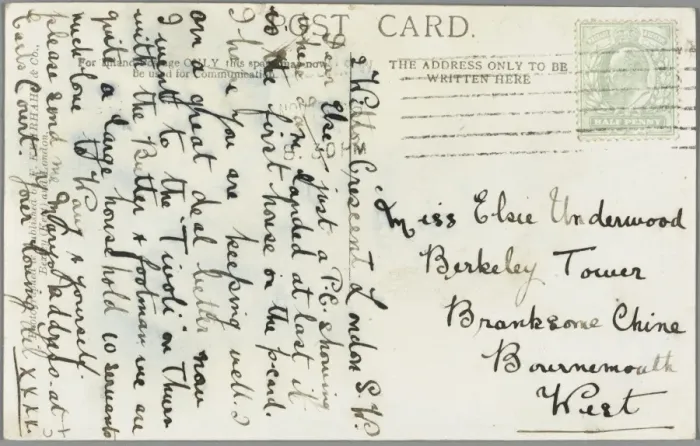 POST CARD.
For Inland Postage ONLY, this space may now
be used for Communication.
THE ADDRESS ONLY TO BE
WRITTEN HERE
HALF PENNY
Wilton Crescent London S.W.
Dear Elsie, just a P.C. showing
where I am landed at last it
is the first house on the p-card.
I hope you are keeping well. I
am a great deal better now
I went to the "Tivoli" on Thurs
with the Butler & footman. we are
quite a large household 10 servants
much love to &amp; yourself.
please send me address at
Earls Court. your loving xxxx.
Miss Elsie Underwood
Berkeley Tower
Branksome Chine
Bournemouth
West